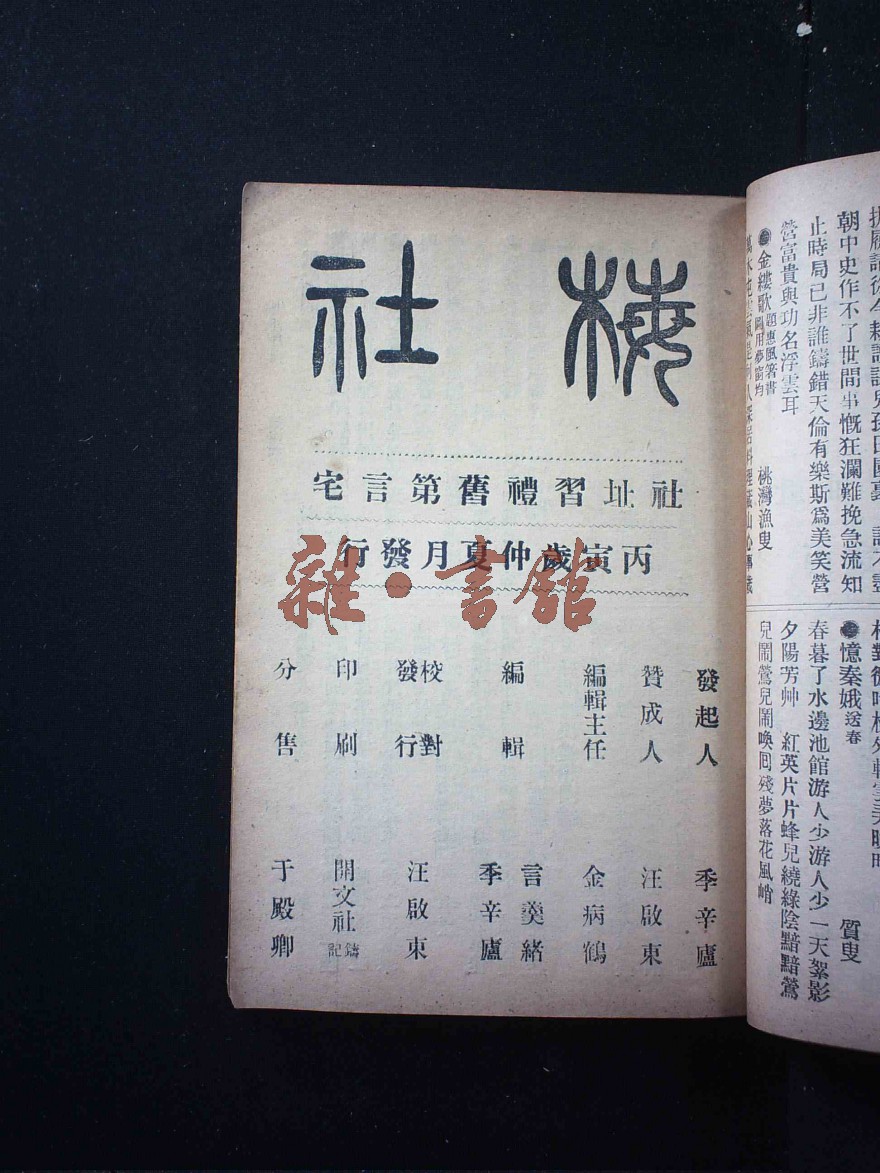 朝中史作不了世間事慨狂瀾難挽急流知
止時局已非誰鑄錯天倫有樂斯爲美笑營
營富貴與功名浮雲耳
●金縷歌題惠風簃書圖用夢窗均
桃灣漁叟
●憶秦娥送春
質叟
春暮了水邊池館游人少游人少一天絮影
夕陽芳艸 紅英片片蜂兒繞綠陰黯黯鶯
兒鬧鶯兒鬧喚囘殘夢落花風峭
梅社
社址習禮舊第言宅
丙寅歲仲夏月發行
發起人 季辛廬
贊成人 汪啟東
編輯主任 金病鶴
編輯 言羹緒 季辛廬
校對 發行 汪啟東
印刷 開文社鑄記
分售 于殿卿
雜·書館